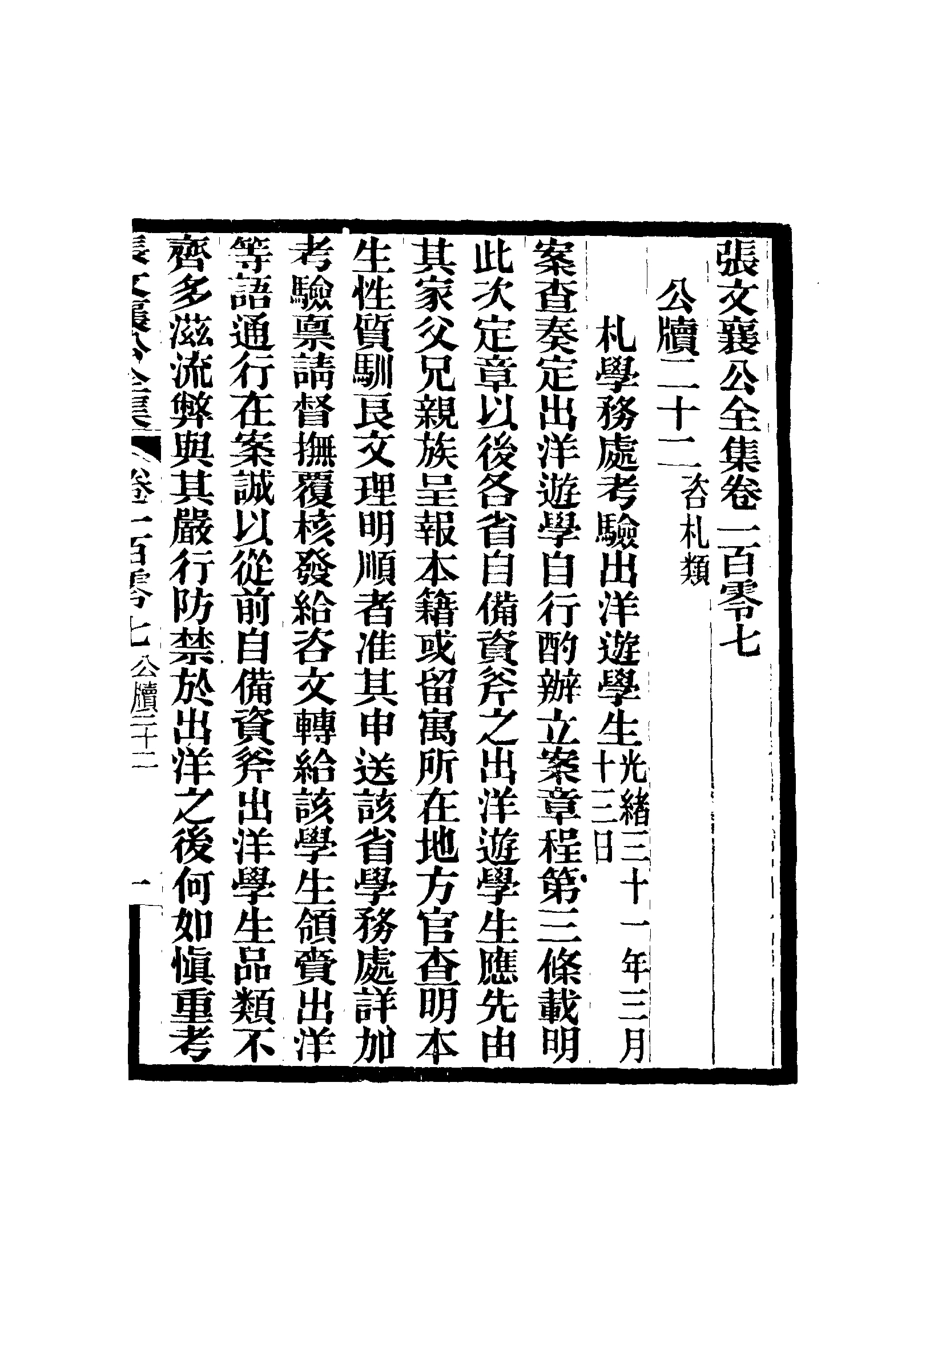 張文襄公全集卷一百零七
公牘二十二 咨札類
札學務處考驗出洋遊學生 光緒三十一年三月十三日
案查奏定出洋遊學自行酌辦立案章程第三條載明
此次定章以後各省自備資斧之出洋遊學生應先由
其家父兄親族呈報本籍或留寓所在地方官查明本
生性質馴良文理明順者准其申送該省學務處詳加
考驗禀請督撫覆核發給咨文轉給該學生領賫出洋
等語通行在案誠以從前自備資斧出洋學生品類不
齊多滋流弊與其嚴行防禁於出洋之後何如慎重考
張文襄公全集 卷一百零七 公牘二十二 一